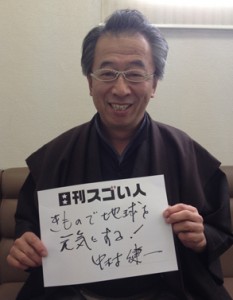 日刊スゴい人
きもので地球を
元気にする!
中村健一